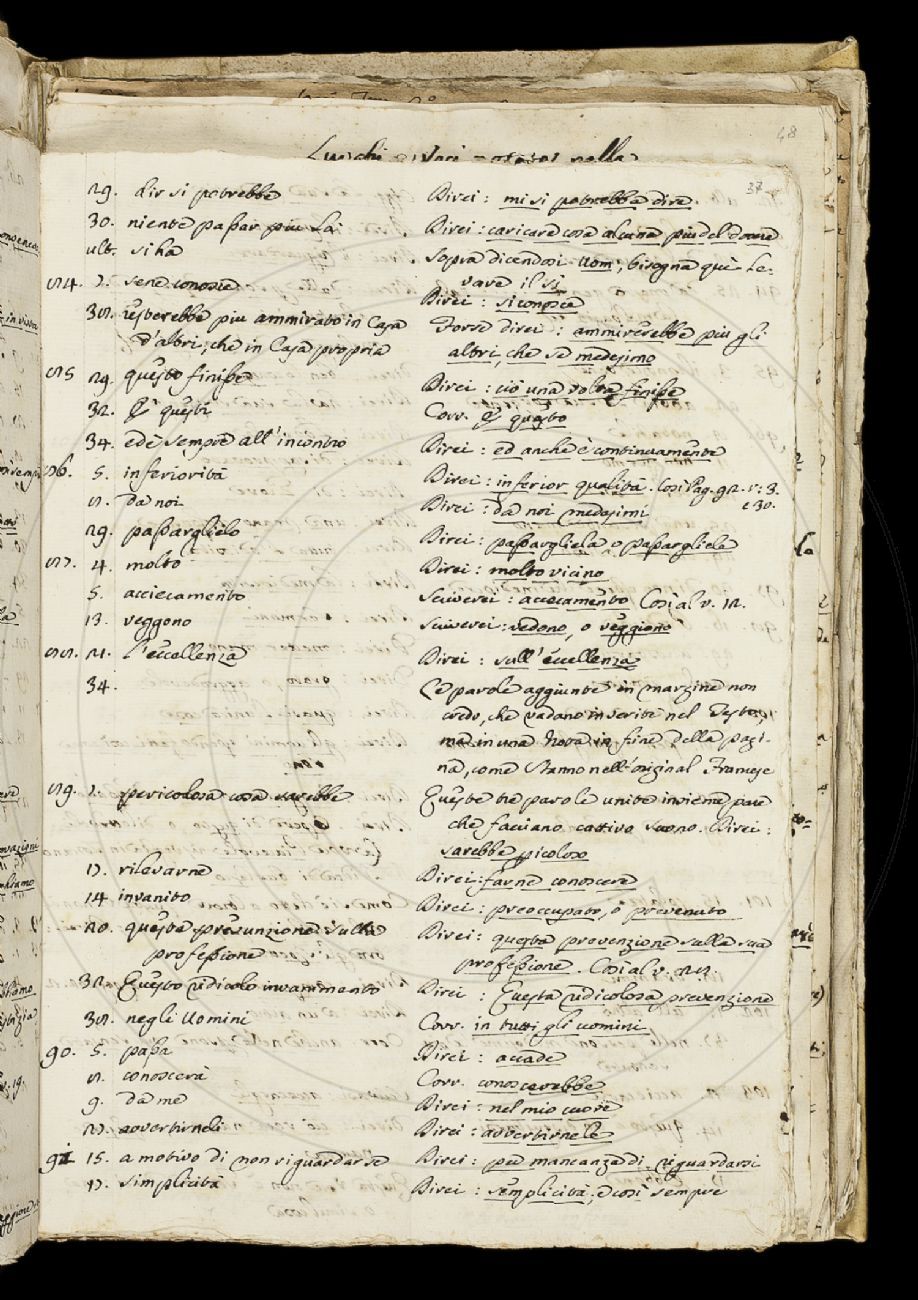 48
Luochi
37
29. dir si potrebbe Direi: mi si potrebbe dire.
30. niente passar piu la: Direi: caricare cosa alcuna piu del dovere
ult. si ha sopra dicendosi Uom', bisogna quì le-
vare il si
84. 7. se ne conosce Direi: si conosce
38. resterebbe piu ammirato in Casa Forse direi: ammirerebbe piu gli
d'altri, che in Casa propria altri, che se medesimo
85 29. questo finisce Direi: ciò una volta finisce
32. E' questi Corr. E' questo
34. ed è sempre all'incontro Direi: ed anche è continuamente
86. 5. inferiorità Direi: inferior qualità. Così Pag. 92. v: 3.
e 30.
8. da noi Direi: da noi medesimi
29. passarglielo Direi: passargliela o passargliela
87. 4. molto Direi: molto vicino
5. acciecamento scriverei: accecamento Così al v. 12.
13. veggono scriverei: vedono, o veggiono
88. 21. l'eccellenza Direi: sull'eccellenza
34. Le parole aggiunte in margine non
credo, che vadano inserite nel Testo,
ma in una Nota in fine della pagi-
na, come stanno nell'original Francese
89. 7. pericolosa cosa sarebbe Queste tre parole unite insieme pare
che facciano cattivo suono. Direi:
sarebbe picoloso
17. rilevarne Direi: farne conoscere
14 invanito Direi: preoccupato, o prevenuto
20. questa presunzione sulla Direi: questa prevenzione sulla sua
professione professione. Così al v. 22.
32. Questo ridicolo invanimento Direi: Questa ridicolosa prevenzione
38. negli Uomini Corr. in tutti gli uomini
90. 5. passa Direi: accade
8. conoscerà Corr. conoscerebbe
9. da me Direi: nel mio cuore
27. avvertirneli Direi: avvertirnele
91 15. a motivo di non riguardarse Direi: per mancanza di riguardarsi
17. simplicità Direi: semplicità, e così sempre